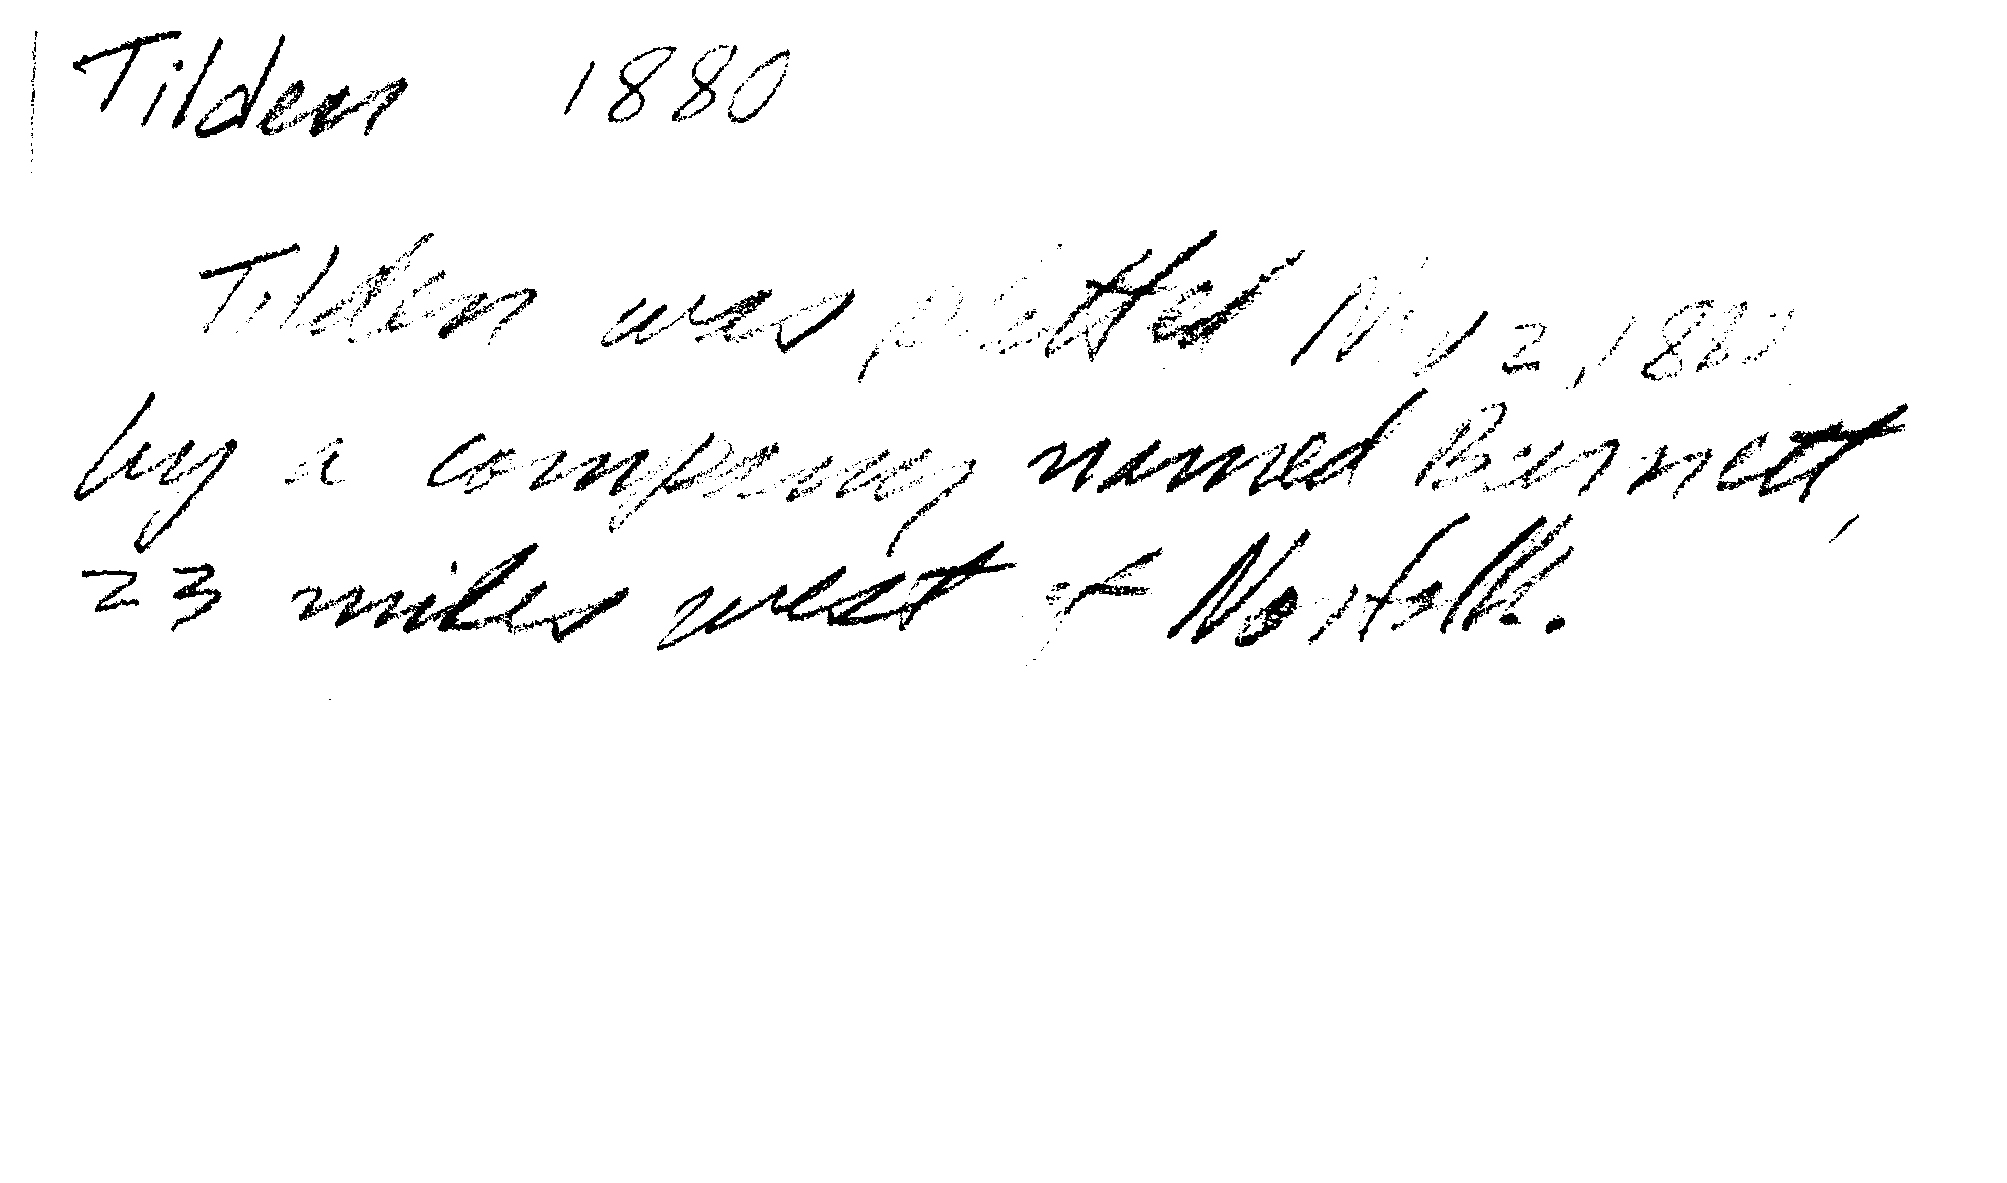 Tilden 1880
Tilden was platted 2, 1880
by a company named Burnett,
23 miles west of Norfolk.